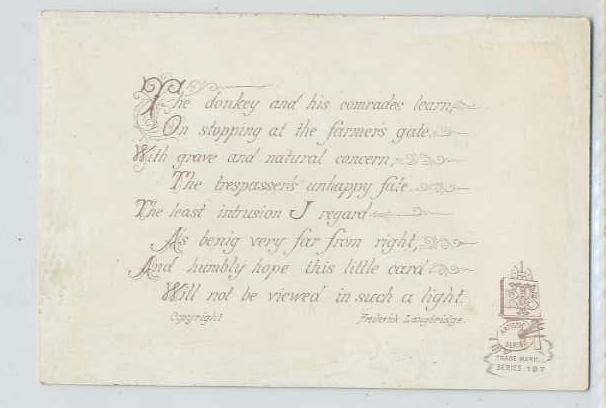 The donkey and his comrades learn,
On stopping at the farmer's gate,
With grave and natural concern,
The trespasser's unhappy fate.
The least intrusion I regard
As benig very far from right,
And humbly hope this little card
Will not be viewed in such a light.
Copyright Frederick Langbridge.
ARTISTIC
SERIES
TRADE MARK.
SERIES 197